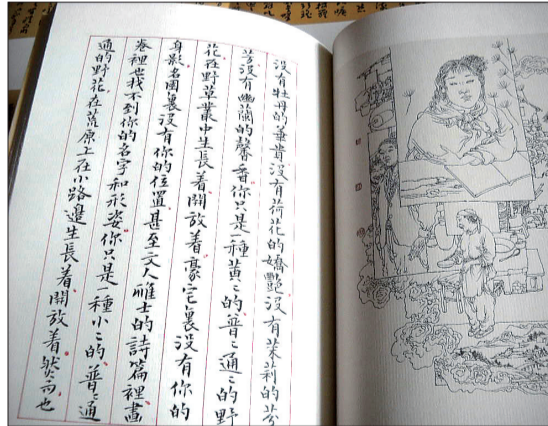 没有牡丹的華貴没有荷花的嬌艷没有茉莉的芬
芳没有幽蘭的馨香你只是一種黄〻的普〻通〻的野
花在野草叢中生長着開放着豪宅裏没有你的
身影名園裏没有你的位置甚至文人雅士的詩篇裡畫
卷裡也找不到你的名字和形姿你只是一種小〻的普〻通
通的野花在荒原上在小路邊生長着開放着然而也